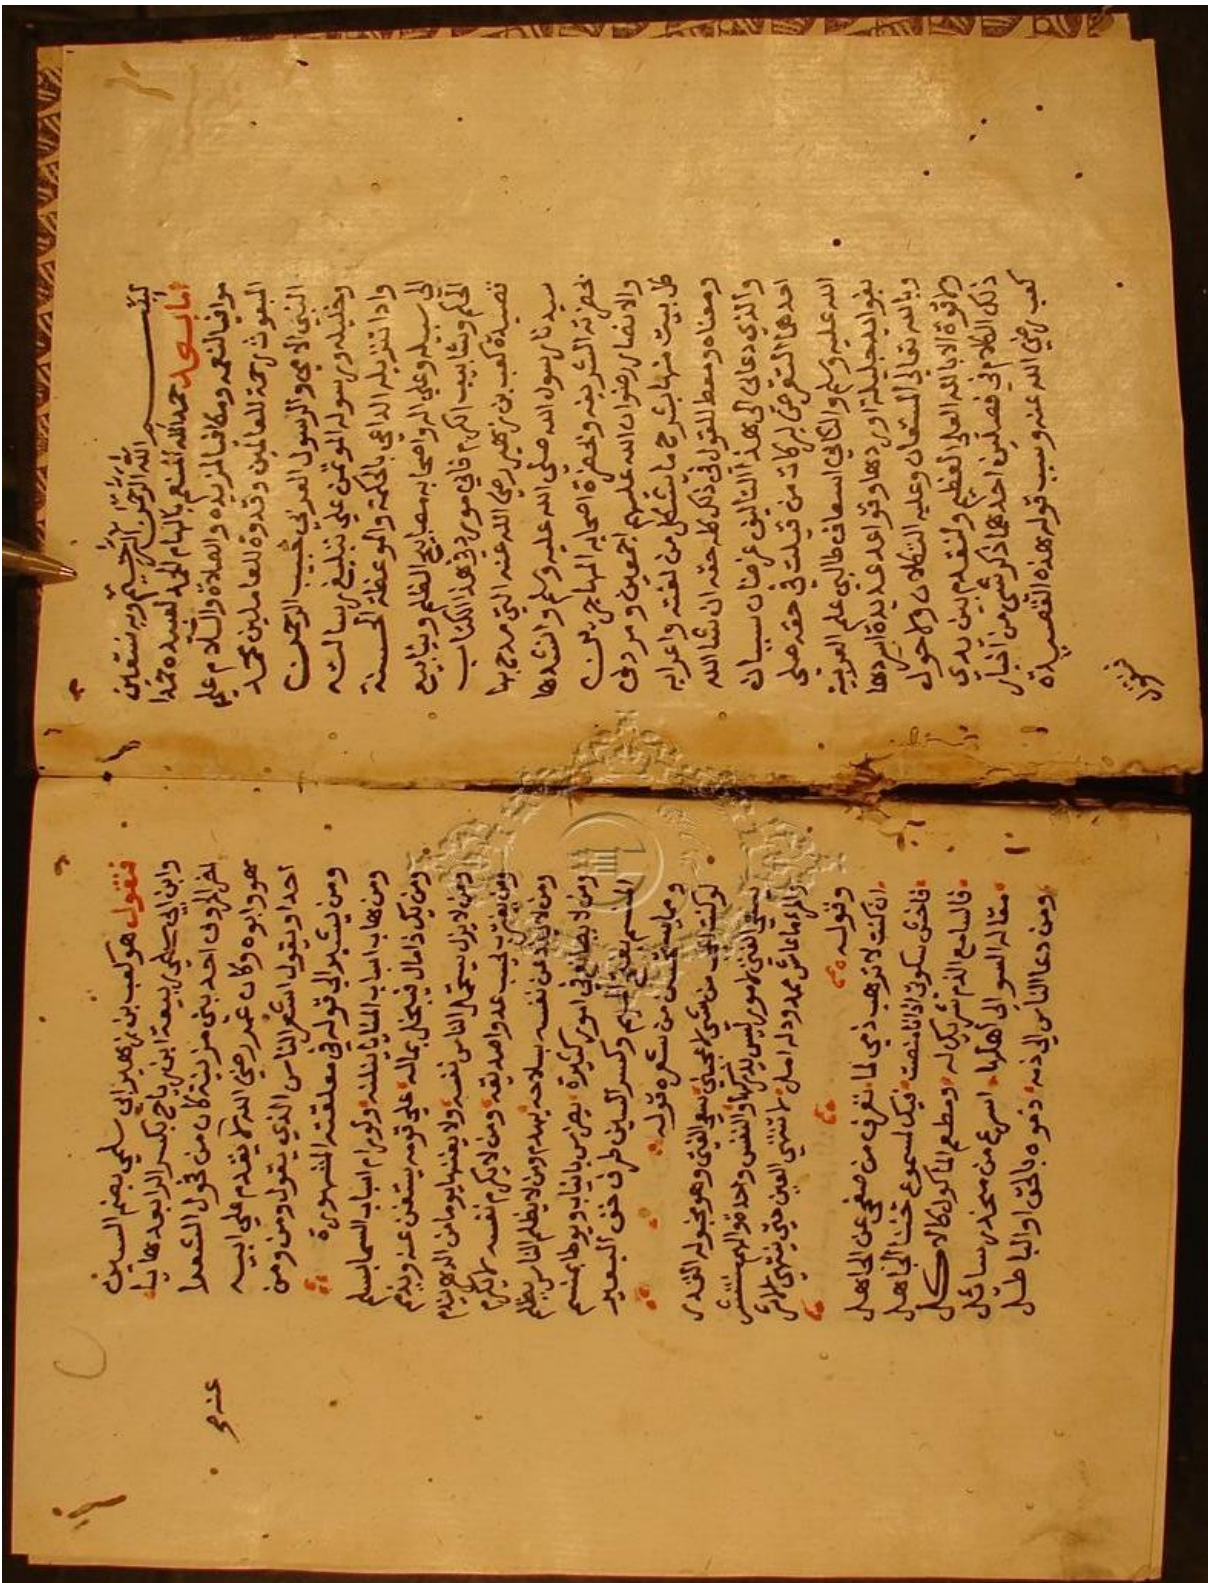 بسم الله الرحمن الرحيم وبه نستعين
أما بعد حمد الله المنعم بالهام الحمد لعبيده حمدا
موافيا لنعمه ومكافيا لمزيده والصلاة والسلام على
المبعوث رحمة للعالمين وقدوة للعاملين محمد
النبي الامي والرسول العربي حبيب الرحمن
وخليله ورسوله المؤتمن على تبليغ رسالته
وادا تنزيله الداعي بالحكمة والموعظة الحسنة
الى سبيله وعلى اله واصحابه مصابيح الظلم وينابيع
الحكم وشابيب الكرم فاني مورد في هذا الكتاب
قصيدة كعب بن زهير رضي الله عنه التي مدح بها
سيدنا رسول الله صلى الله عليه وسلم وانشدها
بحضرته الشريفه وبحضرة اصحابه المهاجرين
والانصار رضوان الله عليهم اجمعين ومردف
كل بيت منها بشرح ما يشكل من لغته واعرابه
ومعناه ومعط للقول في ذلك كله حقه ان شا الله
والذي دعاني الى هذا التاليف غرضان سنيان
احدهما التعرض لبركات من قيلت في حقه صلى
الله عليه وسلم والثاني اسعاف طالبي علم العربية
بفوايد جليلة اوردها وقواعد عديدة اسردها
وبالله تعالى المستعان وعليه التكلان ولا حول
ولا قوة الا بالله العلي العظيم ولنقدم بين يدي
ذلك الكلام في فصلين احدهما ذكر شي من اخبار
كعب رضي الله عنه وسبب قوله هذه القصيدة
فنقول
فنقول هو كعب بن زهير ابن ابي سلمى بضم السين
وابن ابي سلمى ربيعة ابن رياح بكسر الرا بعدها يا
المزني احد بني مزينة كان من فحول الشعرا
هو وابوه وكان عمر رضي الله لا يقدم على ابيه
عنه صح
احدا ويقول اشعر الناس الذي يقول ومن ومن
ومن يشير الى قوله في معلقته المشهورة
ومن هاب اسباب المنايا ينلنه ولو رام اسباب السما بسلم
ومن يك ذا مال فيبخل بماله على قومه يستغن عنه ويذمم
ومن لا يزل يستحمل الناس نفسه ولا يغنها يوما من الدهر يندم
ومن يغترب يحسب عدوا صديقه ومن لا يكرم نفسه لا يكرم
ومن لا يذد عن نفسه بسلاحه يهدم ومن لا يظلم الناس يظلم
ومن لا يصانع في امور كثيرة يضرس بانياب ويوطا بمنسم
المنسم بفتح الميم وكسر السين طرف خف البعير
ومما يستحسن من شعره قوله
لو كنت اعجب من شي لاعجبني سعي الفتى وهو مخبو له القدر
يسعى الفتى لامور ليس يدركها والنفس واحدة والهم منتشر
والمرء ما عاش ممدود له امل لا تنتهي العين حتى ينتهي الاثر
وقوله
ان كنت لا ترهب ذمي لما تعرف من صفحي عن الجاهل
فاخش سكوتي اذ انا منصت فيك لمسموع خنا الجاهل
فالسامع الذم شريك له ومطعم الماكول كالاكل
مقالة السو الى اهلها اسرع من منحدر سائل
ومن دعا الناس الى ذمه ذموه بالحق وبالباطل